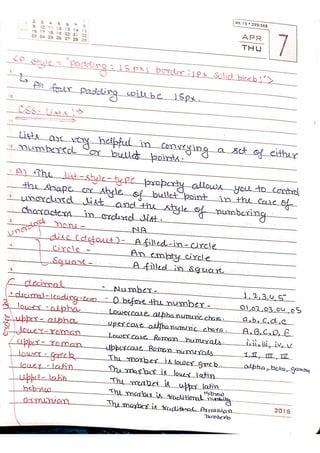 WK 15 • 098-268
APR
THU
7
<p style = "padding: 15px; border: 1px solid black;">
↳ All four padding will be 15px.
CSS- Lists :→
Lists are very helpful in conveying a set of either
numbered or bullet points.
A) The list-style-type property allows you to control
the shape or style of bullet point in the case of
unordered list and the style of numbering
characters in ordered list.
unordered none - NA
disc (default) - A filled-in-circle
Circle - An empty circle
Square - A filled in square
decimal - Number - 1,2,3,4,5
decimal-leading-zero - 0 before the number - 01,02,03,04,05
lower-alpha Lowercase alphanumeric chara. a,b,c,d,e
upper-alpha uppercase alphanumeric chara. A,B,C,D,E
lower-roman Lowercase Roman numerals. i,ii,iii,iv,v
upper-roman uppercase Roman numerals I,II,III,IV
lower-greek The marker is lower greek. alpha, beta, gamma
lower-latin The marker is lower latin
upper-latin The marker is upper latin
hebrew The marker is traditional Hebrew numbering
armenian The marker is traditional Armenian numbering
2016